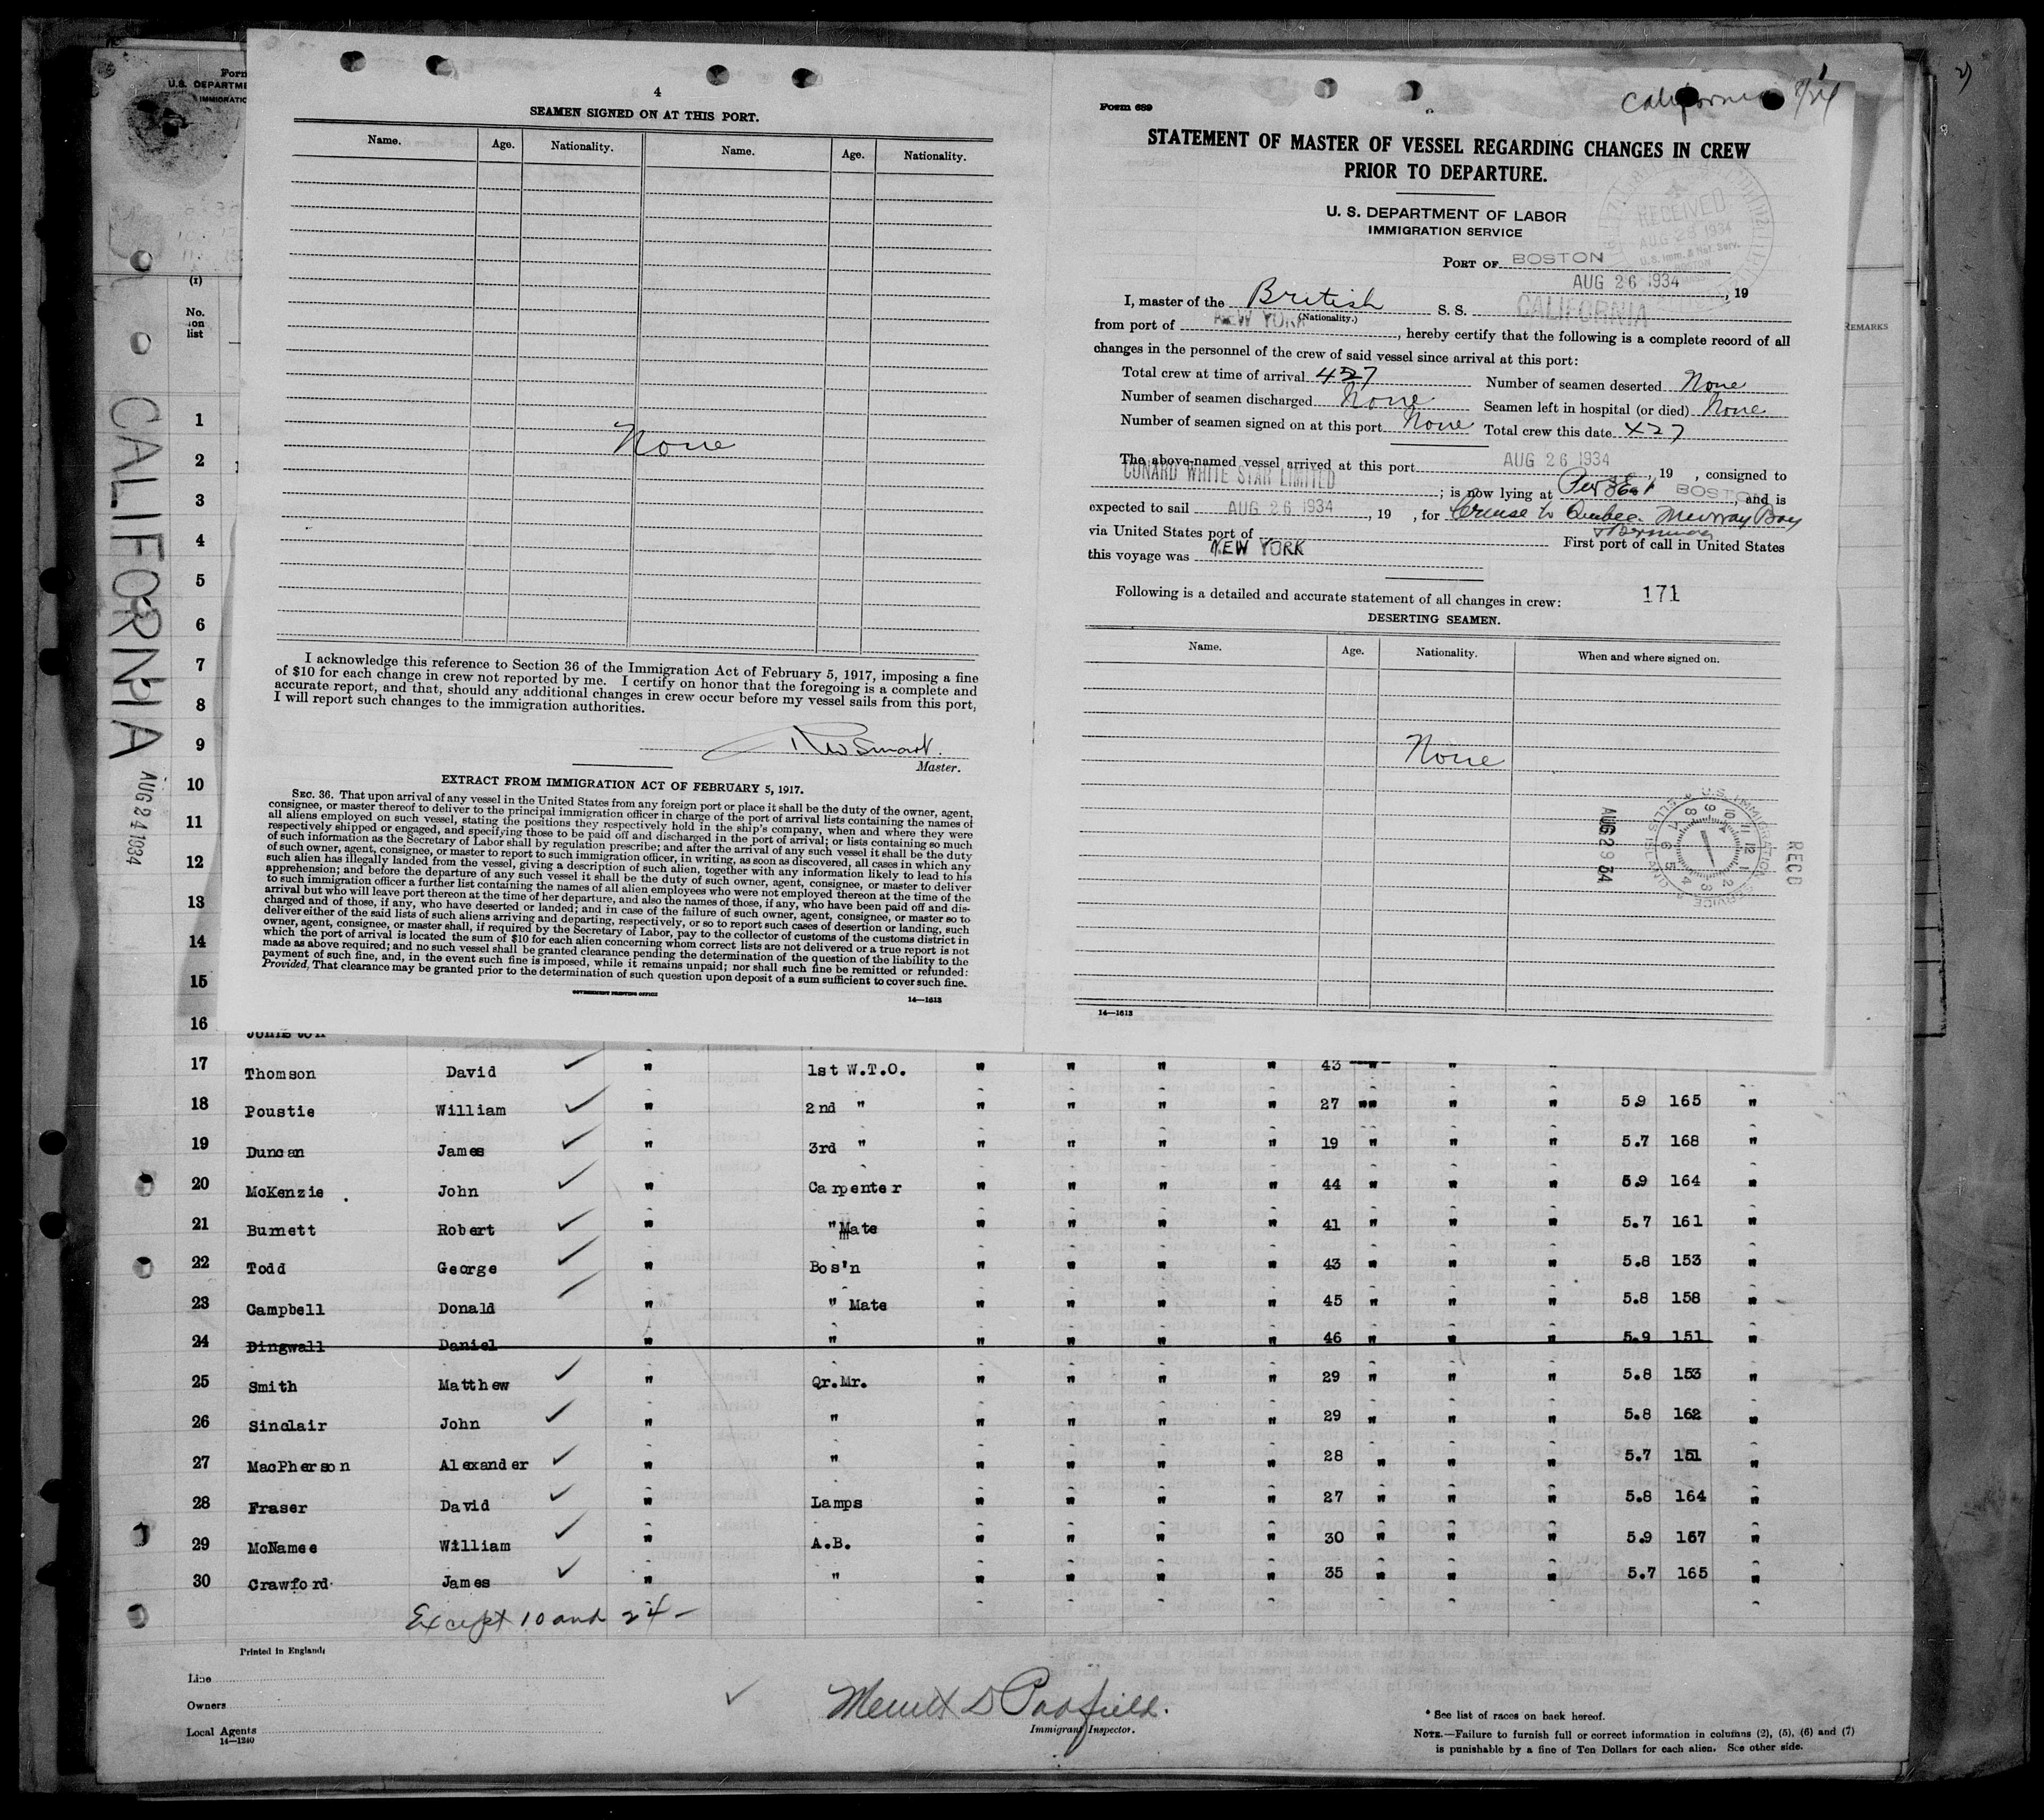 Form
U.S. DEPARTME
IMMIGRATIO
(1)
No.
on
list
CALIFORNIA
AUG 24 1934
1
2
3
4
5
6
7
8
9
10
11
12
13
14
15
16
4
SEAMEN SIGNED ON AT THIS PORT.
Name. Age. Nationality. Name. Age. Nationality.
None
I acknowledge this reference to Section 36 of the Immigration Act of February 5, 1917, imposing a fine
of $10 for each change in crew not reported by me. I certify on honor that the foregoing is a complete and
accurate report, and that, should any additional changes in crew occur before my vessel sails from this port,
I will report such changes to the immigration authorities.
RW Smart.
Master.
EXTRACT FROM IMMIGRATION ACT OF FEBRUARY 5, 1917.
SEC. 36. That upon arrival of any vessel in the United States from any foreign port or place it shall be the duty of the owner, agent,
consignee, or master thereof to deliver to the principal immigration officer in charge of the port of arrival lists containing the names of
all aliens employed on such vessel, stating the positions they respectively hold in the ship's company, when and where they were
respectively shipped or engaged, and specifying those to be paid off and discharged in the port of arrival; or lists containing so much
of such information as the Secretary of Labor shall by regulation prescribe; and after the arrival of any such vessel it shall be the duty
of such owner, agent, consignee, or master to report to such immigration officer, in writing, as soon as discovered, all cases in which any
such alien has illegally landed from the vessel, giving a description of such alien, together with any information likely to lead to his
apprehension; and before the departure of any such vessel it shall be the duty of such owner, agent, consignee, or master to deliver
to such immigration officer a further list containing the names of all alien employees who were not employed thereon at the time of the
arrival but who will leave port thereon at the time of her departure, and also the names of those, if any, who have been paid off and dis-
charged and of those, if any, who have deserted or landed; and in case of the failure of such owner, agent, consignee, or master so to
deliver either of the said lists of such aliens arriving and departing, respectively, or so to report such cases of desertion or landing, such
owner, agent, consignee, or master shall, if required by the Secretary of Labor, pay to the collector of customs of the customs district in
which the port of arrival is located the sum of $10 for each alien concerning whom correct lists are not delivered or a true report is not
made as above required; and no such vessel shall be granted clearance pending the determination of the question of the liability to the
payment of such fine, and, in the event such fine is imposed, while it remains unpaid; nor shall such fine be remitted or refunded:
Provided, That clearance may be granted prior to the determination of such question upon deposit of a sum sufficient to cover such fine.
GOVERNMENT PRINTING OFFICE 14—1613
Form 689
California 8/24
STATEMENT OF MASTER OF VESSEL REGARDING CHANGES IN CREW
PRIOR TO DEPARTURE.
U. S. DEPARTMENT OF LABOR
IMMIGRATION SERVICE
RECEIVED
AUG 28 1934
U.S. Imm. & Nat. Serv.
BOSTON
MASS.
PORT OF BOSTON
AUG 26 1934, 19
I, master of the British S. S. CALIFORNIA
(Nationality.)
from port of NEW YORK, hereby certify that the following is a complete record of all
changes in the personnel of the crew of said vessel since arrival at this port:
Total crew at time of arrival 427 Number of seamen deserted None
Number of seamen discharged None Seamen left in hospital (or died) None
Number of seamen signed on at this port None Total crew this date 427
The above-named vessel arrived at this port AUG 26 1934, 19 , consigned to
CUNARD WHITE STAR LIMITED; is now lying at Pier 36 BOSTON, and is
expected to sail AUG 26 1934, 19 , for Cruise to Quebec. Murray Bay
& Bermuda
via United States port of First port of call in United States
this voyage was NEW YORK
Following is a detailed and accurate statement of all changes in crew: 171
DESERTING SEAMEN.
Name. Age. Nationality. When and where signed on.
None
AUG 29 34
U.S. IMMIGRATION SERVICE ELLIS ISLAND
RECD
14—1613
REMARKS
Johnston
17 Thomson David ✓ " 1st W.T.O. " " " " 43 " " "
18 Poustie William ✓ " 2nd " " " " " 27 "" " " 5.9 165 "
19 Duncan James ✓ " 3rd " " " " " 19 " " " 5.7 168 "
20 McKenzie John ✓ " Carpenter " " " " 44 " " " 5.9 164 "
21 Burnett Robert ✓ " "Mate " " " " 41 " " " 5.7 161 "
22 Todd George ✓ " Bos'n " " " " 43 " " " 5.8 153 "
23 Campbell Donald ✓ " " Mate " " " " 45 " " " 5.8 158 "
24 Dingwall Daniel " " " " " " 46 " " " 5.9 151 "
25 Smith Matthew ✓ " Qr.Mr. " " " " 29 " " " 5.8 153 "
26 Sinclair John ✓ " " " " " " 29 " " " 5.8 162 "
27 MacPherson Alexander ✓ " " " " " " 28 " " " 5.7 151 "
28 Fraser David ✓ " Lamps " " " " 27 " " " 5.8 164 "
29 McNamee William ✓ " A.B. " " " " 30 " " " 5.9 167 "
30 Crawford James ✓ " " " " " " 35 " " " 5.7 165 "
Except 10 and 24 —
Printed in England;
Line
Owners
Local Agents
14—1240
✓ Merritt D Padfield.
Immigrant Inspector.
* See list of races on back hereof.
NOTE.—Failure to furnish full or correct information in columns (2), (5), (6) and (7)
is punishable by a fine of Ten Dollars for each alien. See other side.